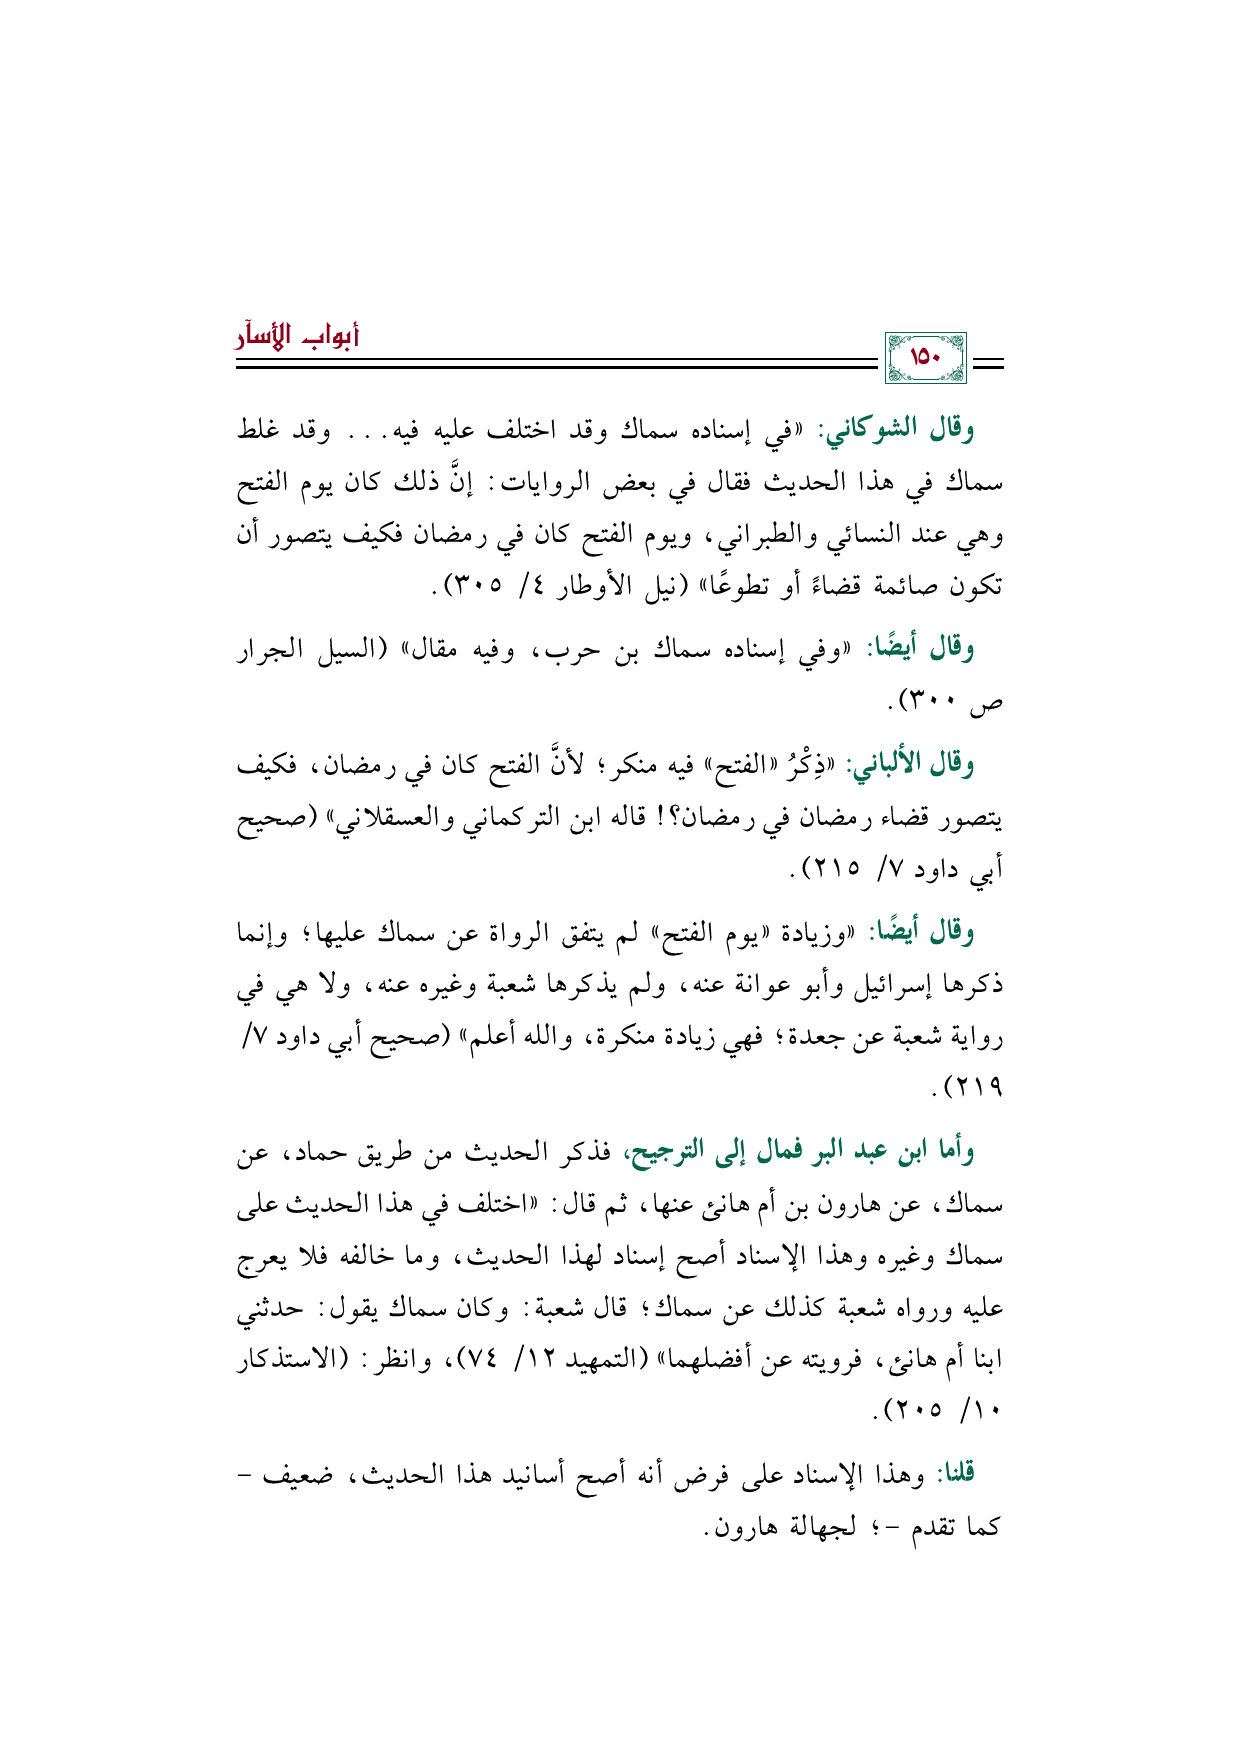 أبواب الأسآر
١٥٠
وقال الشوكاني: «في إسناده سماك وقد اختلف عليه فيه... وقد غلط
سماك في هذا الحديث فقال في بعض الروايات: إنَّ ذلك كان يوم الفتح
وهي عند النسائي والطبراني، ويوم الفتح كان في رمضان فكيف يتصور أن
تكون صائمة قضاءً أو تطوعًا» (نيل الأوطار ٤/ ٣٠٥).
وقال أيضًا: «وفي إسناده سماك بن حرب، وفيه مقال» (السيل الجرار
ص ٣٠٠).
وقال الألباني: «ذِكْرُ «الفتح» فيه منكر؛ لأنَّ الفتح كان في رمضان، فكيف
يتصور قضاء رمضان في رمضان؟! قاله ابن التركماني والعسقلاني» (صحيح
أبي داود ٧/ ٢١٥).
وقال أيضًا: «وزيادة «يوم الفتح» لم يتفق الرواة عن سماك عليها؛ وإنما
ذكرها إسرائيل وأبو عوانة عنه، ولم يذكرها شعبة وغيره عنه، ولا هي في
رواية شعبة عن جعدة؛ فهي زيادة منكرة، والله أعلم» (صحيح أبي داود ٧/
٢١٩).
وأما ابن عبد البر فمال إلى الترجيح، فذكر الحديث من طريق حماد، عن
سماك، عن هارون بن أم هانئ عنها، ثم قال: «اختلف في هذا الحديث على
سماك وغيره وهذا الإسناد أصح إسناد لهذا الحديث، وما خالفه فلا يعرج
عليه ورواه شعبة كذلك عن سماك؛ قال شعبة: وكان سماك يقول: حدثني
ابنا أم هانئ، فرويته عن أفضلهما» (التمهيد ١٢/ ٧٤)، وانظر: (الاستذكار
١٠/ ٢٠٥).
قلنا: وهذا الإسناد على فرض أنه أصح أسانيد هذا الحديث، ضعيف –
كما تقدم –؛ لجهالة هارون.